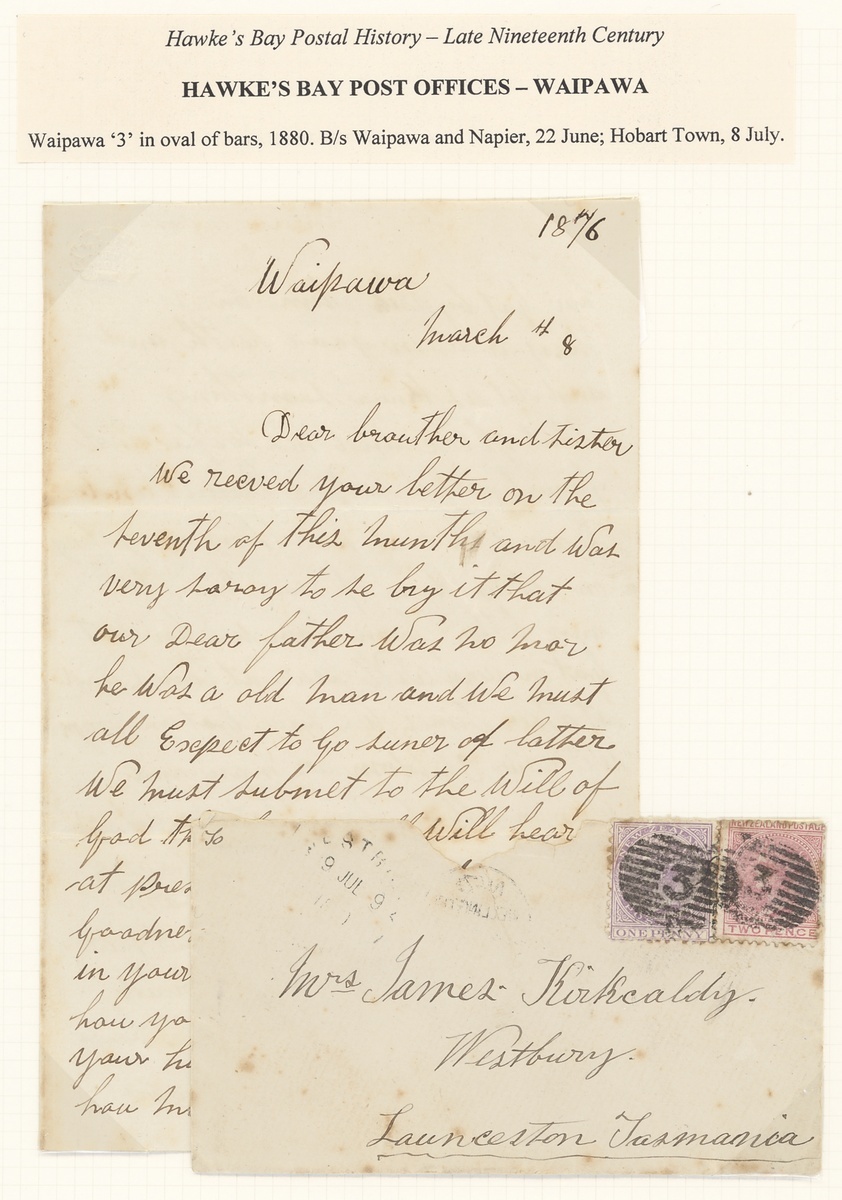 Hawke's Bay Postal History – Late Nineteenth Century
HAWKE'S BAY POST OFFICES – WAIPAWA
Waipawa '3' in oval of bars, 1880. B/s Waipawa and Napier, 22 June; Hobart Town, 8 July.
1876
Waipawa
March 4 8
Dear brouther and sister
We reeved your letter on the
seventh of this munth and Was
very saray to se by it that
our Dear father Was no mor
he Was a old man and We must
all Exepect to Go suner of latter
We must submet to the Will of
God Will hear
at pres
Goodne
in your
hou yo
your hu
hou
9 JUL 9
3
3
ONE PENNY
NEW ZEALAND POSTAGE
TWO PENCE
Mrs James Kirkcaldy.
Westbury.
Launceston Tasmania